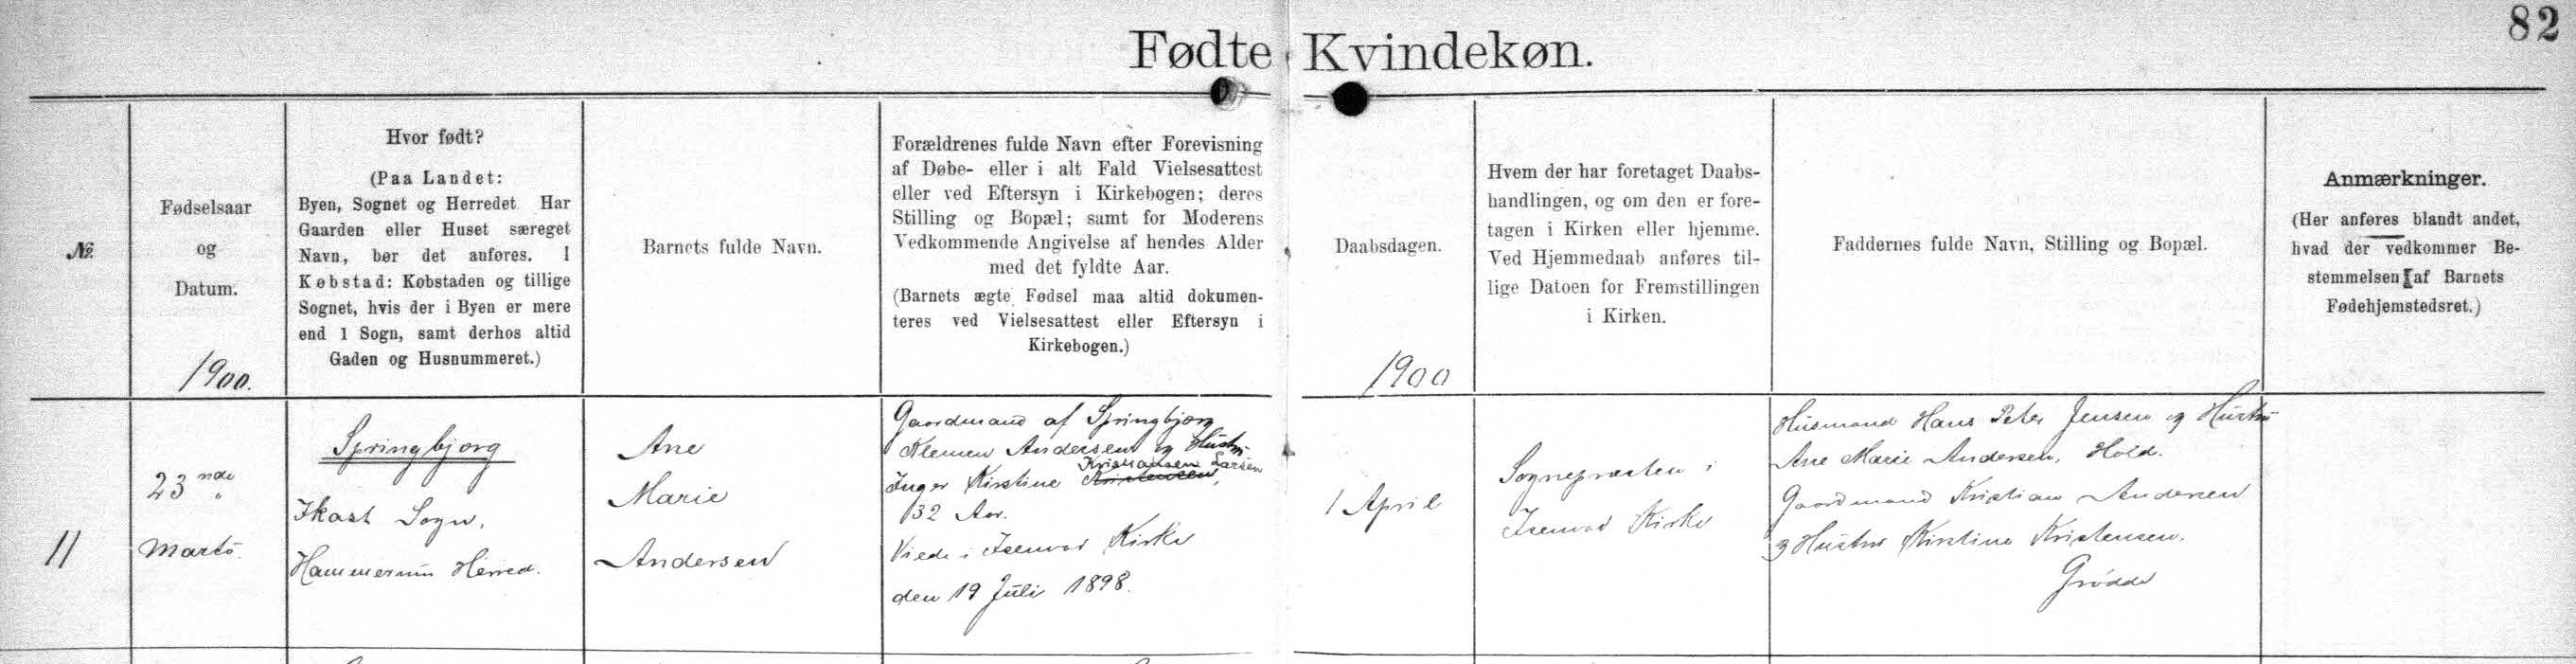 82
Fødte Kvindekøn.
№
Fødselsaar
og
Datum.
1900.
Hvor født?
(Paa Landet:
Byen, Sognet og Herredet Har
Gaarden eller Huset særeget
Navn, bør det anføres. I
Købstad: Købstaden og tillige
Sognet, hvis der i Byen er mere
end 1 Sogn, samt derhos altid
Gaden og Husnummeret.)
Barnets fulde Navn.
Forældrenes fulde Navn efter Forevisning
af Døbe- eller i alt Fald Vielsesattest
eller ved Eftersyn i Kirkebogen; deres
Stilling og Bopæl; samt for Moderens
Vedkommende Angivelse af hendes Alder
med det fyldte Aar.
(Barnets ægte Fødsel maa altid dokumen-
teres ved Vielsesattest eller Eftersyn i
Kirkebogen.)
Daabsdagen.
1900
Hvem der har foretaget Daabs-
handlingen, og om den er fore-
tagen i Kirken eller hjemme.
Ved Hjemmedaab anføres til-
lige Datoen for Fremstillingen
i Kirken.
Faddernes fulde Navn, Stilling og Bopæl.
Anmærkninger.
(Her anføres blandt andet,
hvad der vedkommer Be-
stemmelsen af Barnets
Fødehjemstedsret.)
11
23nde "
Marts.
Springbjerg
Ikast Sogn,
Hammerum Herred.
Ane
Marie
Andersen
Gaardmand af Springbjerg
Klemen Andersen og Hustru
Kristiansen Larsen
Inger Kirstine Kristensen,
32 Aar.
Viede i Isenvad Kirke
den 19 Juli 1898.
1 April
Sognepræsten i
Isenvad Kirke
Husmand Hans Peter Jensen og Hustru
Ane Marie Andersen, Hold.
Gaardmand Kristian Andersen
og Hustru Kirstine Kristensen.
Grødde